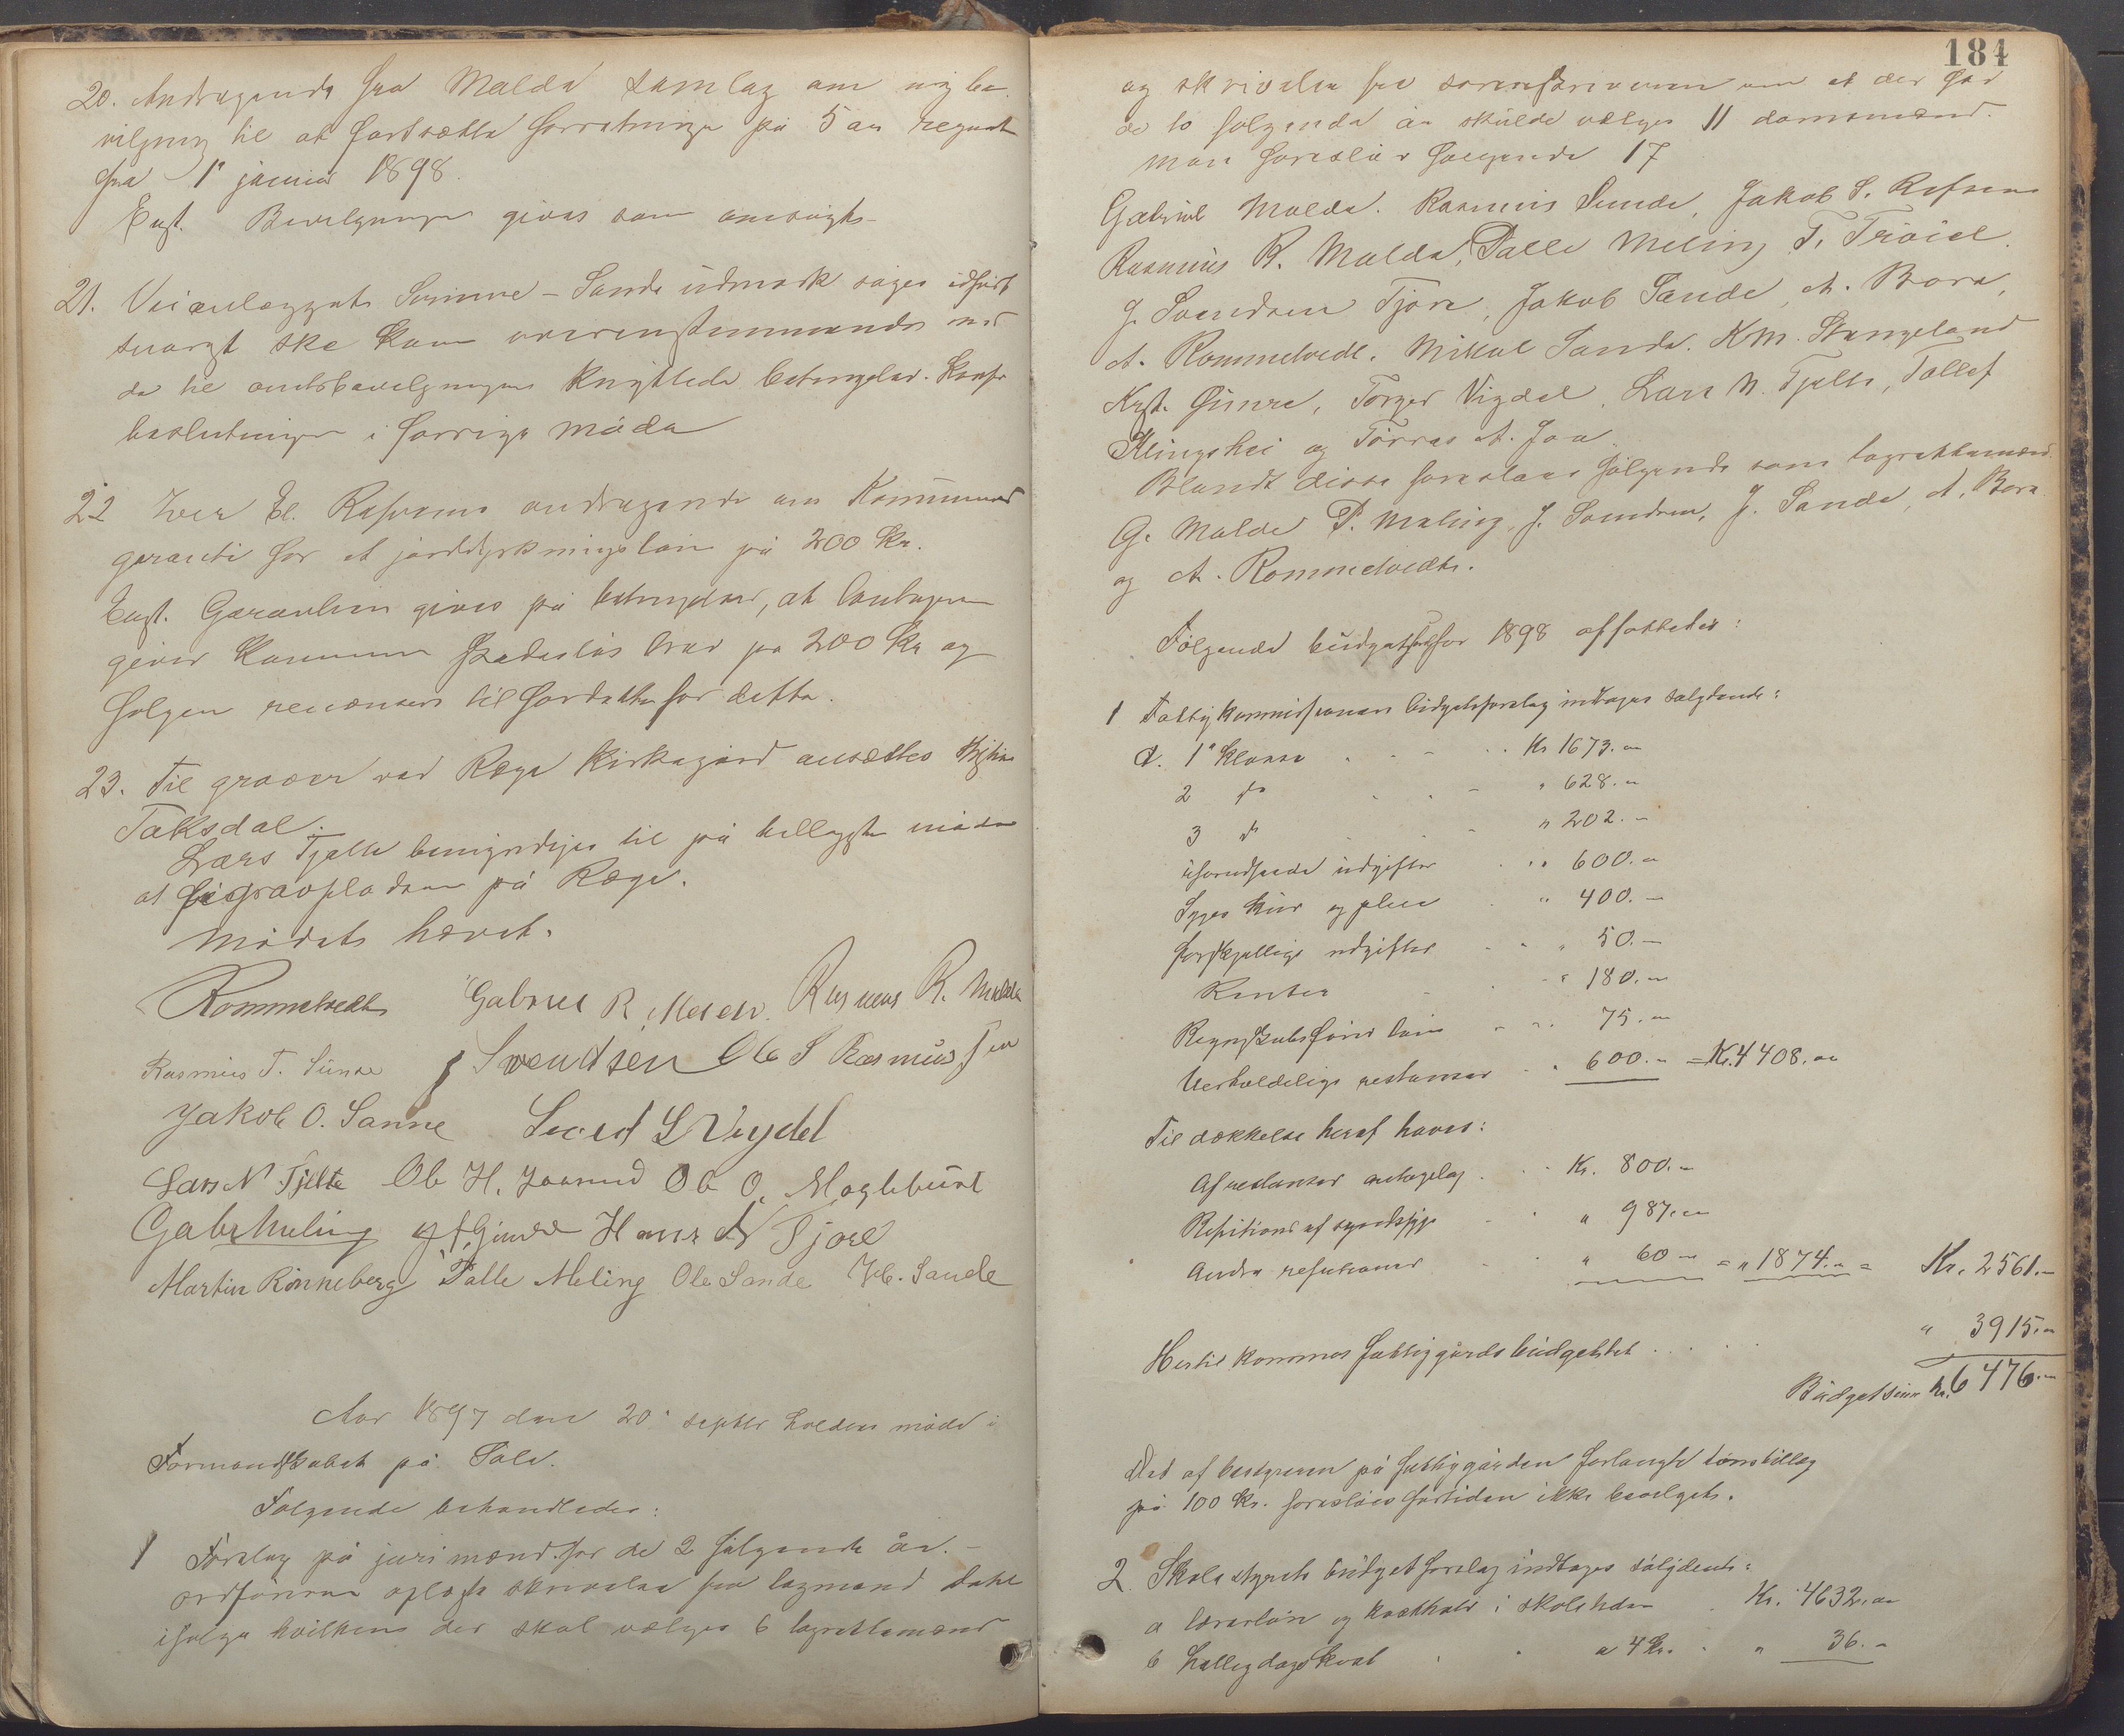 20. Andragende fra Malde samlag om ny be-
vilgning til at fortsætte forretningen på 5 aar regnet
fra 1' januar 1898.
Enst. Bevilgningen gives som ansøgt
21. Veianlægget Sunne - Sande udmark søges udført
snarest ske kan overensstemmende med
de til amtsbevilgningen knyttede betingelser.
beslutningen i forrige møde
22 Iver El. Refsnes andragende om Kommune
garanti for et jorddyrkningslån på 200 Kr.
Enst. Garantien gives på betingelse, at låntageren
giver Kommunen skadesløs brev på 200 Kr og
følgen renoncerer til fordel for dette.
23. Til graver ved Ræge Kirkegård ansættes
Taksdal.
Lars Tjelta bemyndiges til på belligste måde
at få gravpladsen på Ræge.
Mødet hævet.
Rommetvedt Gabriel R. Malde. Rasmus R. Malde
Rasmus T. Sunde J Svendsen Ole S Rasmussen
Jakob O. Sanne L Vigdel
Lars N Tjelta Ole H. Joasund Ole O.
Gab Meling Hans A Tjore
Martin Rønneberg Palle Meling Ole Sande Jak. Sande
Aar 1897 den 20' septbr holdtes møde i
Formandskabet på Sole.
Følgende behandledes:
1 Forslag på jurimænd for de 2 følgende år. -
ordføreren oplæste skrivelse fra lagmand Dahl
ifølge hvilken der skal vælges 6 lagrettemænd
184
og skrivelse fra sorenskriveren om at der for
de to følgende år skulde vælges 11 domsmænd.
Man foreslår følgende 17
Gabriel Malde. Rasmus Sunde, Jakob S. Refsnes
Rasmus R. Malde, Palle Meling T. Trøiel.
J. Svendsen Tjore, Jakob Sande, A. Bore,
A. Rommetvedt. Mikal Sande. K M. Stangeland
Krist. Gimre, Torger Vigdel, Lars N. Tjelta, Tollef
Klingshei og Torres A. Joa.
Blandt disse foreslaaes følgende som lagrettemænd
G. Malde P. Meling, J. Svendsen, J. Sande, A. Bore
og A. Rommetvedt.
Følgende budgetter for 1898 affattedes:
1 Fattigkommissionens budgetforslag indtages saalydende:
A. 1' Klasse Kr 1673.00
2 do " 628.00
3 do " 202.-
uforudseede udgifter " 600.00
Syges kur og pleie " 400.-
forskjellige udgifter " 50.-
Renter " 180.00
Regnskabsfører løn " 75.00
Uerholdelige restanser " 600.- = Kr. 4408.00
Til dækkelse heraf haves:
Af restanser antagelig Kr. 800.-
Refusioner af sindssyge " 987.00
Andre refusioner " 60 - = " 1874.- = Kr. 2561.-
Hertil kommer fattiggårds budgettet " 3915.00
Budgetsum Kr. 6476.-
Det af bestyreren på fattiggården forlangte lønstillæg
på 100 Kr. foreslåes fortiden ikke bevilget.
2. Skolestyrets budgetforslag indtages sålydende:
a lærerløn og kosthold i skoletiden Kr. 4632.00
b helligdagskost a 4 Kr. " 36.-